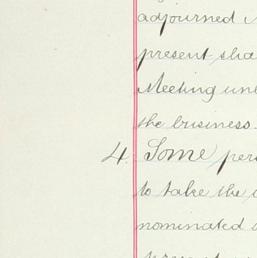 adjourned
present sha
Meeting un
the business
4. Some per
to take the
nominated